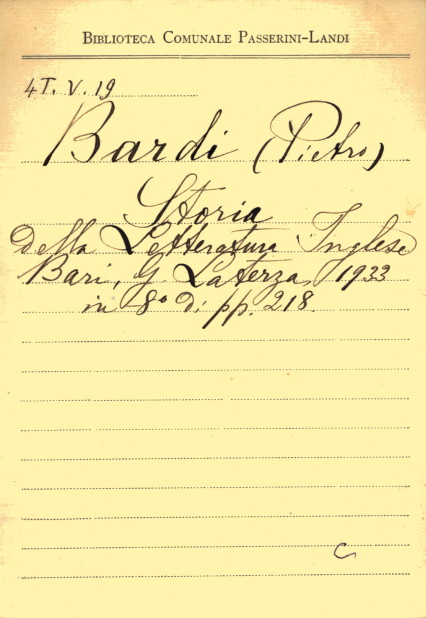 BIBLIOTECA COMUNALE PASSERINI-LANDI
4T. V. 19
Bardi (Pietro)
Storia
della Letteratura Inglese
Bari, G. Laterza, 1933
in 8° di pp. 218.
C